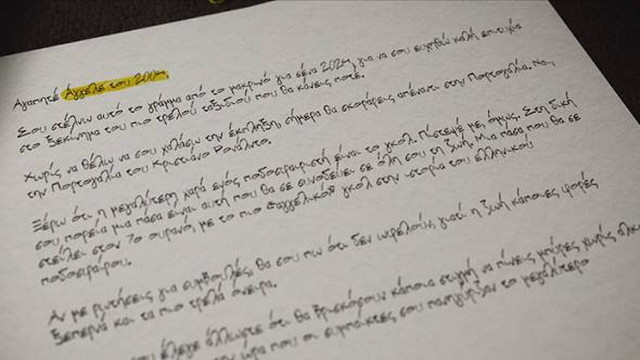 Αγαπητέ Άγγελε του 2004,
Σου στέλνω αυτό το γράμμα από το μακρινό για σένα 2024, για να σου ευχηθώ καλή επιτυχία
στο ξεκίνημα του πιο τρελού ταξιδιού που θα κάνεις ποτέ.
Χωρίς να θέλω να σου χαλάσω την έκπληξη, σήμερα θα σκοράρεις απέναντι στην Πορτογαλία. Ναι,
την Πορτογαλία του Κριστιάνο Ρονάλντο.
Ξέρω ότι η μεγαλύτερη χαρά ενός ποδοσφαιριστή είναι το γκολ. Πίστεψέ με, όμως. Στη δική
σου πορεία μια πάσα είναι αυτή που θα σε συνοδεύει σε όλη σου τη ζωή. Μια πάσα που θα σε
στείλει στον 7ο ουρανό, με το πιο "αγγελικό" γκολ στην ιστορία του ελληνικού
ποδοσφαίρου.
Αν με ρωτήσεις για συμβουλές, θα σου πω ότι δεν ωφελούν, γιατί η ζωή κάποιες φορές
ξεπερνά και τα πιο τρελά όνειρα.
σου έλεγε άλλωστε ότι θα βρισκόσουν κάποια στιγμή να πίνεις μπύρες χωρίς
την ώρα που οι συμπαίκτες σου πανηγύριζαν το μεγαλύτερο